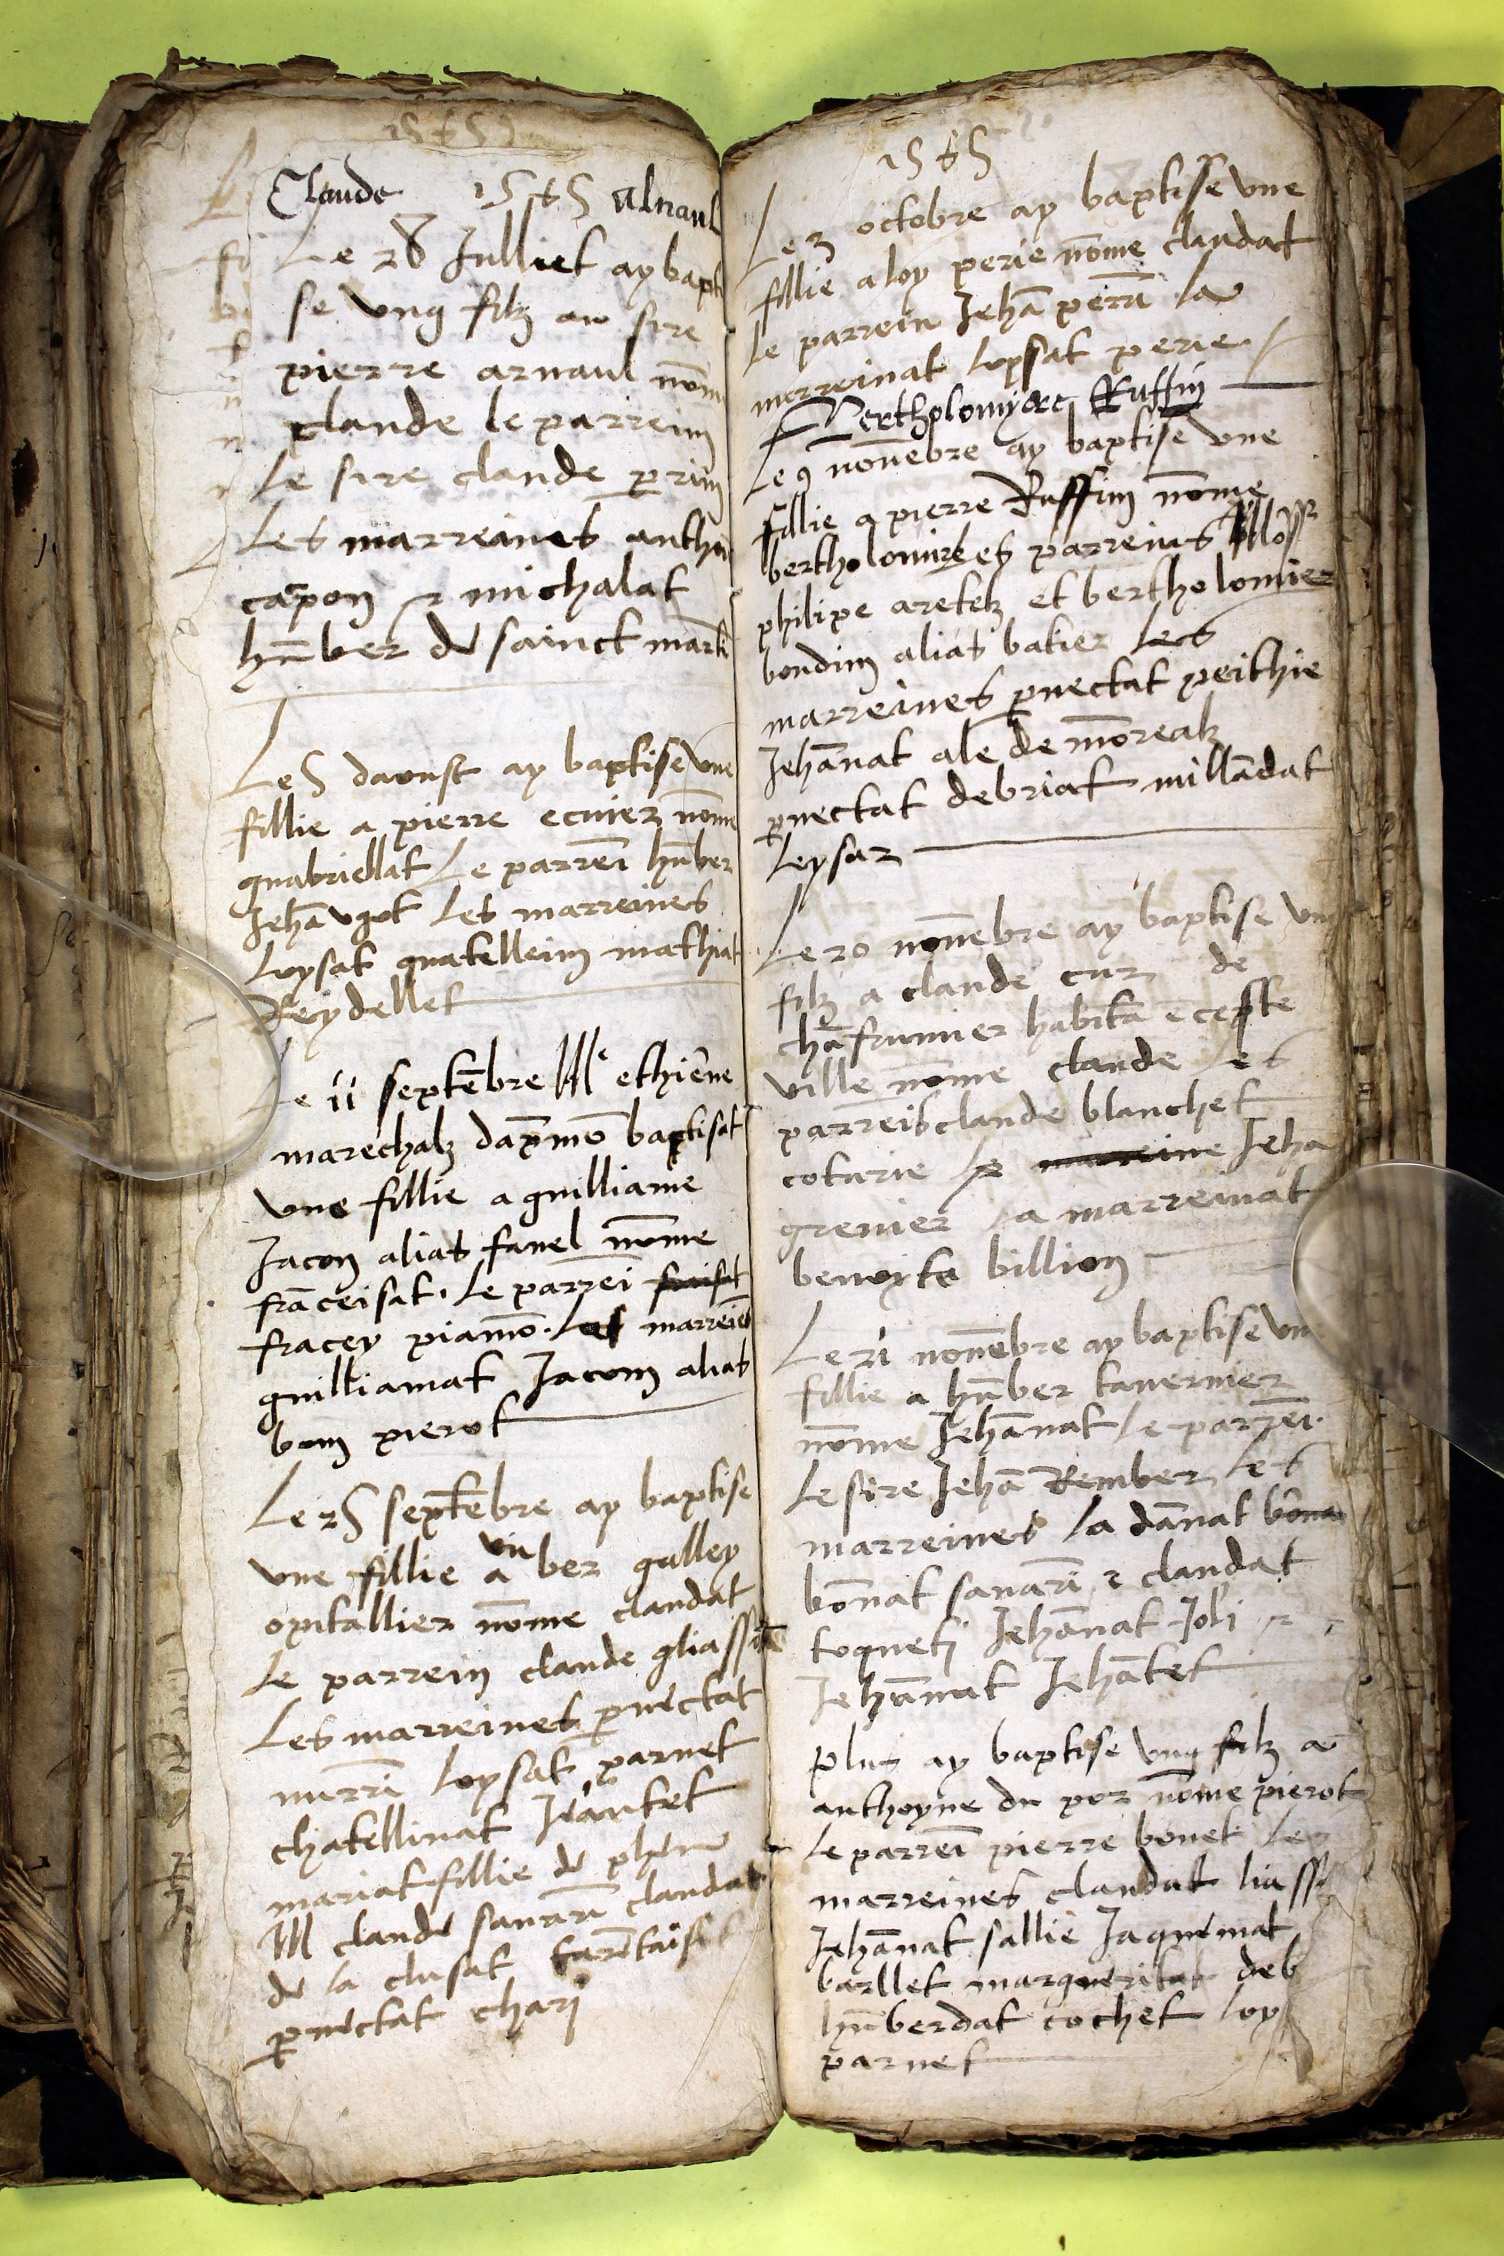 1565
Claude 1565 Alnaul
Le 28 Julliet ay bapti
se ung filz au sire
pierre arnaul nõme
claude le parreim
le sire claude perrim
Les marreines antho
capon et michalat
hũber de sainct marti
Le 5 daoust ay baptise une
fillie a pierre ecuier nõme
guabriellat Le parreĩ hũber
Jehã ugot Les marreines
Loysat guatelleim mathiat
Reydellet
Le 11 septẽbre Mᵉ ethiẽne
marechalz dapremõ baptisat
une fillie a guilliame
Jacon alias fanel nõme
frãceisat. Le parreĩ
fracey piamõ. Les marreies
guilliamat Jacom alias
bom pierot
Le 25 septẽbre ay baptise
une fillie a un ber galley
opitallier nõme claudat
le parrein claude gliassi
Les marreines pernectat
nurri Loysat parnet
chatellinat Jeãntet
mariat fillie de
M claude savarĩ claudat
de la clusat
pernectat chari
1565
Le 3 octobre ay baptise une
fillie a loy perie nõme claudat
le parrein Jehã perrã la
marreinat loysat perie
Bertholomyere Ruffin
Le 9 novẽbre ay baptise une
fillie a pierre Ruffim nõme
bertholomire les parreins
philipe aretelz et bertholomier
bondim alias batier Les
marreines pernectat peithie
Jehãnat ale de mõrealz
pernectat debriat millãdat
Leysar
Le 20 novẽbre ay baptise un
filz a claude cur de
chãfrumier habitã ẽ ceste
ville nõme claude les
parreis claude blanchet
coturie le Jeha
grenier la marreinat
benoyte billion
Le 21 novẽbre ay baptise un
fillie a hũber tavernier
nõme Jehãnat le parreĩ.
Le sire Jehã Rember Les
marreines la dãnat bona
bõnat savarĩ e claudat
toqueti Jehãnat Joli et
Jehãnat Jehãtet
Plus ay baptise ung filz a
anthoyne du por nõme pierot
Le parreĩ pierre bonet Les
marreines claudat liass
Jehãnat sallie Jaquemat
barllet margueritat deb
hũberdat cochet loys
parnet